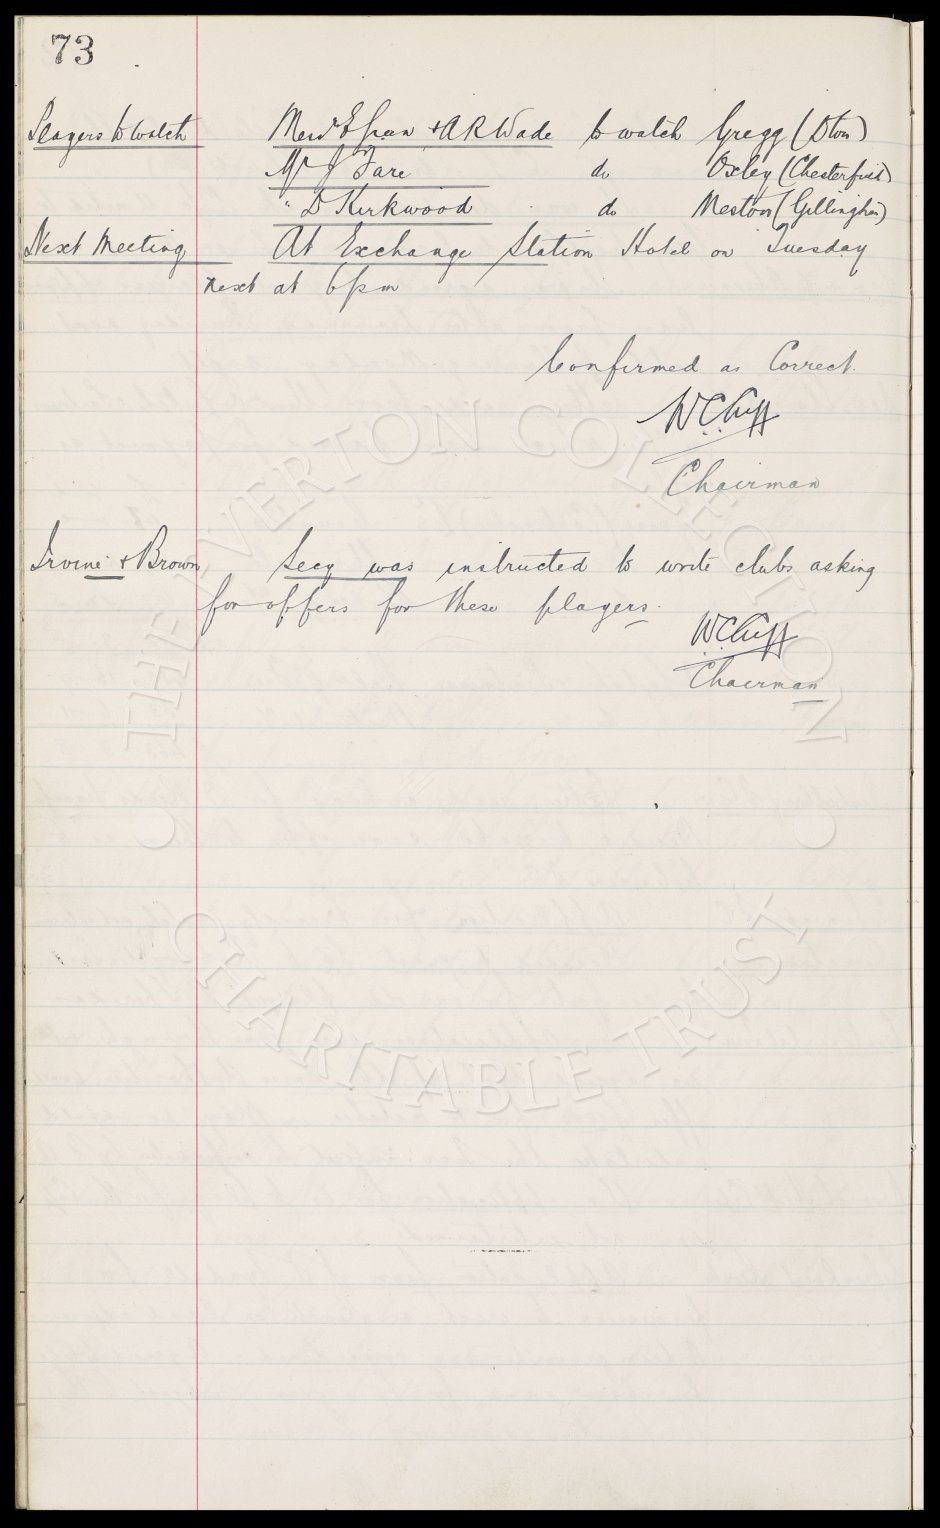 73
Players to Watch Messrs E Green + A R Wade to watch Gregg (Dton)
Mr J Fare do Oxley (Chesterfield)
" D Kirkwood do Meston (Gillingham)
Next Meeting At Exchange Station Hotel on Tuesday
next at 6pm
Confirmed as Correct.
W C Cuff
Chairman
Irvine + Brown Secy was instructed to write clubs asking
for offers for these players.
W C Cuff
Chairman
THE EVERTON COLLECTION
CHARITABLE TRUST